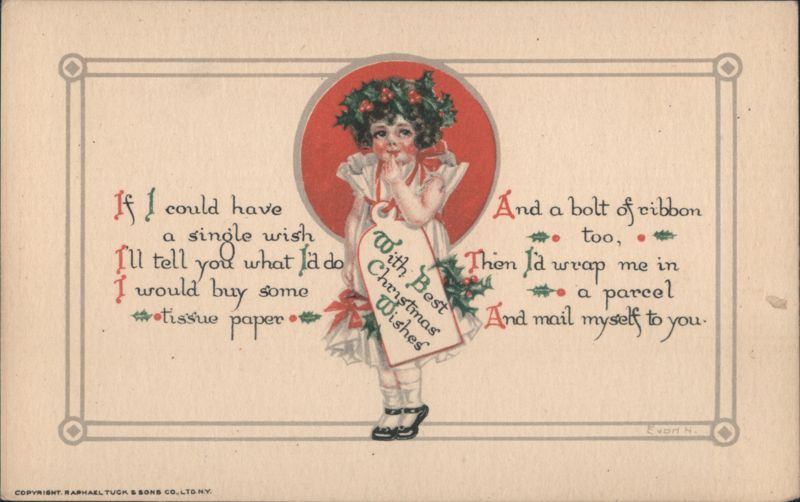 If I could have
a single wish
I'll tell you what I'd do
I would buy some
tissue paper
And a bolt of ribbon
too,
Then I'd wrap me in
a parcel
And mail myself to you.
With Best
Christmas
Wishes
Evon H.
COPYRIGHT. RAPHAEL TUCK & SONS CO., LTD. N.Y.